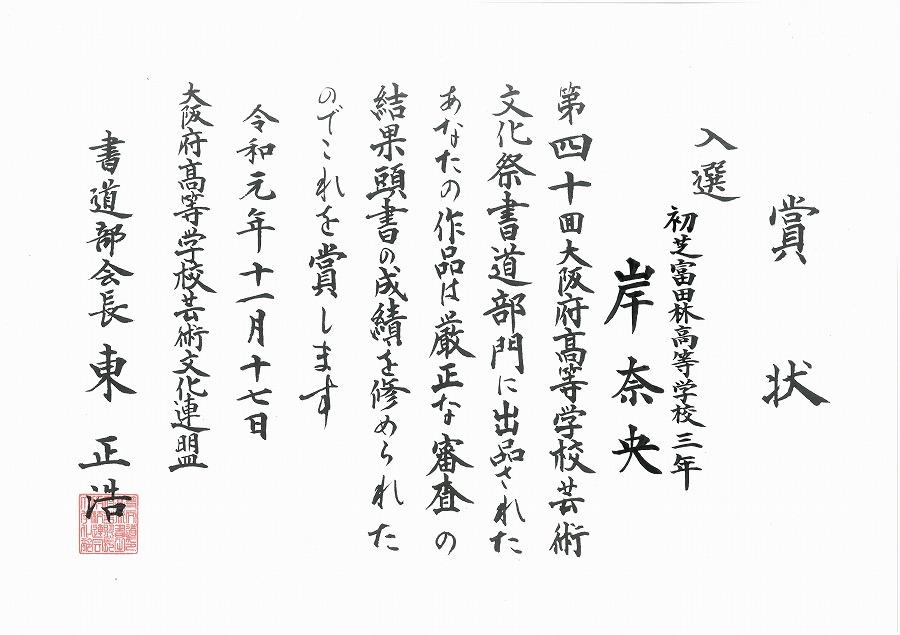 賞状
入選
初芝富田林高等学校三年
岸奈央
第四十回大阪府高等学校芸術
文化祭書道部門に出品された
あなたの作品は厳正な審査の
結果頭書の成績を修められた
のでこれを賞します
令和元年十一月十七日
大阪府高等学校芸術文化連盟
書道部会長 東 正浩